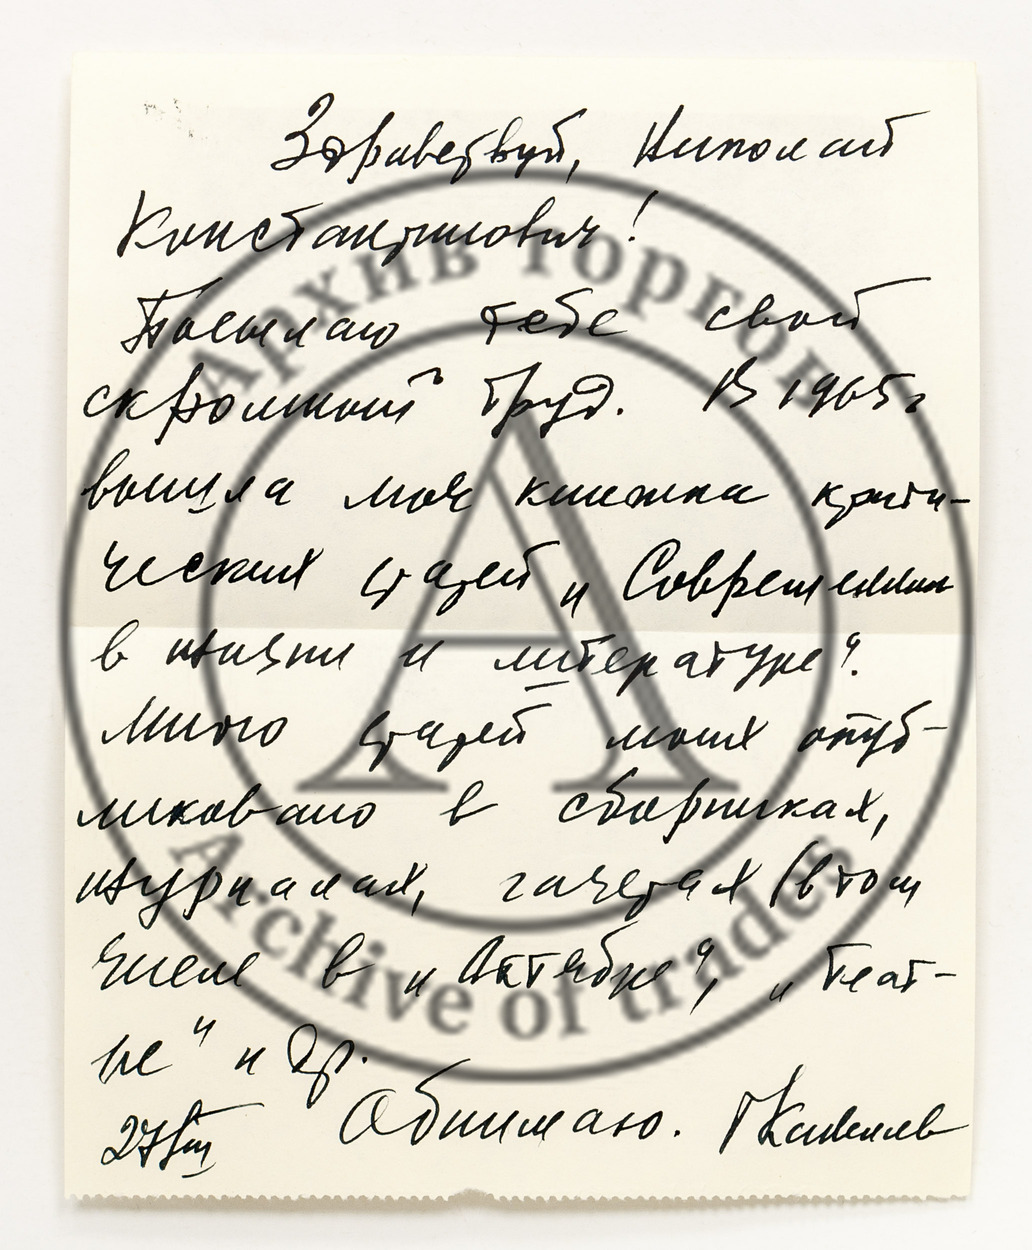 Здравствуй, Николай
Константинович!
Посылаю тебе свой
скромный труд. В 1965 г
вышла моя книжка крити-
ческих статей „Современник
в жизни и литературе“.
Много статей моих опуб-
ликовано в сборниках,
журналах, газетах (в том
числе в „Октябре“, „Теат-
ре“ и др.
27/VIII Обнимаю.
Архив торгов
A
Archive of trades